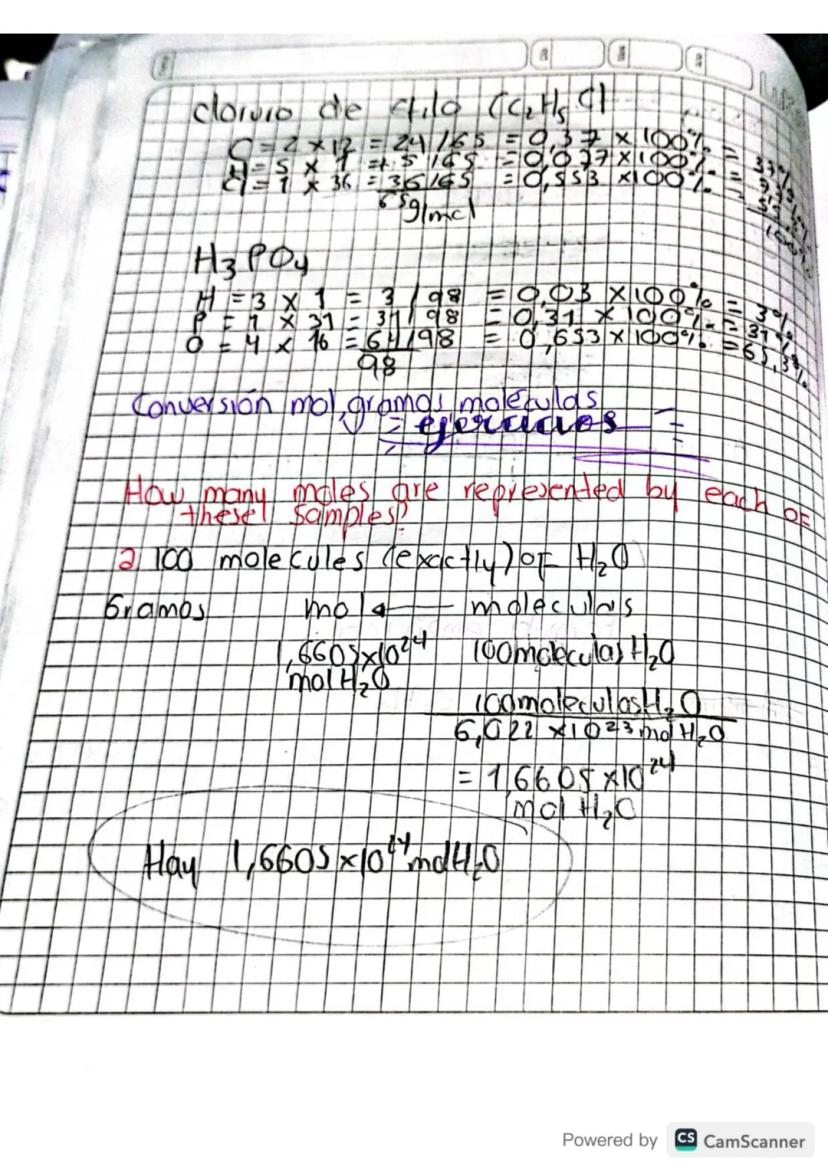 cloruro de etilo (C₂H₅Cl
C = 2 × 12 = 24/65 = 0,37 × 100% =
H = 5 × 1 = 5/65 = 0,077 × 100% =
Cl = 1 × 36 = 36/65 = 0,553 × 100% =
65g/mol
100%
H₃PO₄
H = 3 × 1 = 3/98 = 0,03 × 100% = 3%
P = 1 × 31 = 31/98 = 0,31 × 100% = 31%
O = 4 × 16 = 64/98 = 0,653 × 100% = 65,3%
98
Conversión mol, gramos, moléculas
ejercicios
How many moles are represented by each of
these samples?
a 100 molecules (exactly) of H₂O
Gramos mol ← moleculas
1,6605×10²⁴ 100moleculas H₂O
mol H₂O
100moleculas H₂O
6,022 ×10²³ mol H₂O
= 1,6605 ×10²⁴
mol H₂O
Hay 1,6605×10²⁴ mol H₂O
Powered by CS CamScanner